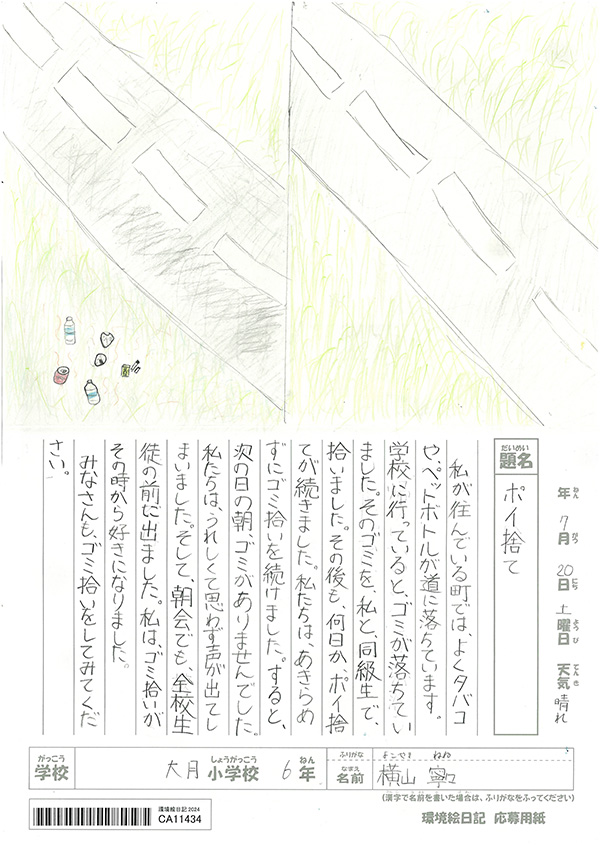 年 ねん
7月 がつ
20日 にち
土曜日 ようび
天気 てんき 晴れ
だいめい
題名
ポイ捨て
私が住んでいる町では、よくタバコ
や、ペットボトルが道に落ちています。
学校に行っていると、ゴミが落ちてい
ました。そのゴミを、私と、同級生で、
拾いました。その後も、何日か、ポイ捨
てが続きました。私たちは、あきらめ
ずにゴミ拾いを続けました。すると、
次の日の朝、ゴミがありませんでした。
私たちは、うれしくて思わず声が出てし
まいました。そして、朝会でも、全校生
徒の前に出ました。私は、ゴミ拾いが
その時から好きになりました。
みなさんも、ゴミ拾いをしてみてくだ
さい。
がっこう
学校
大月 小学校 しょうがっこう 6年 ねん
ふりがな よこやま ねね
なまえ
名前
横山 寧
(漢字で名前を書いた場合は、ふりがなをふってください)
環境絵日記 2024
CA11434
環境絵日記 応募用紙